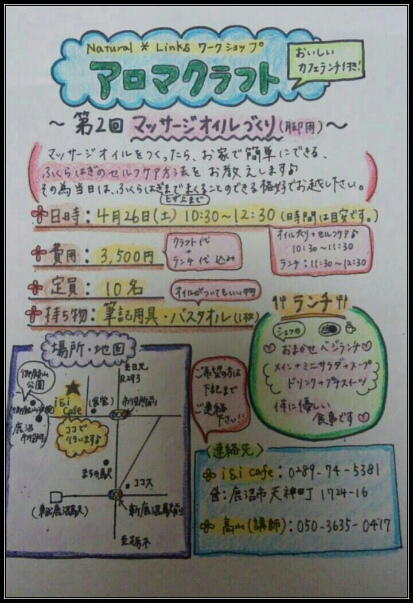 Natural * Links ワークショップ
アロマクラフト
おいしい
カフェランチ付き!
～第2回 マッサージオイルづくり(脚用)～
マッサージオイルをつくったら、お家で簡単にできる、
ふくらはぎのセルフケア方法をお教えします♪
その為当日は、ふくらはぎまでまくることのできる恰好でお越し下さい。
日時：4月26日(土) 10:30～12:30 (日時間は目安です。)
費用：3,500円
クラフト代
+
ランチ代 込み
オイル作り+セルフケア
10:30～11:30
ランチ：11:30～12:30
定員：10名
オイルがついてもいい
持ち物：筆記用具・バスタオル(1枚)
ランチ
シェフの
おまかせベジランチ
メイン+ミニサラダ+スープ
ドリンク+プラスーン
体に優しい
食事です♡
ご希望の方は
下記まで
ご連絡
下さい!!
場所・地図
御殿山
公園
至日光
R293
i&i Cafe
市役所前
鹿沼
市役所
ココで
行います♪
まちの駅
ココス
(新鹿沼駅)
新鹿沼駅前
至栃木
〈連絡先〉
i&i cafe：0289-74-5381
住：鹿沼市天神町1724-16
高山(講師)：050-3635-0417